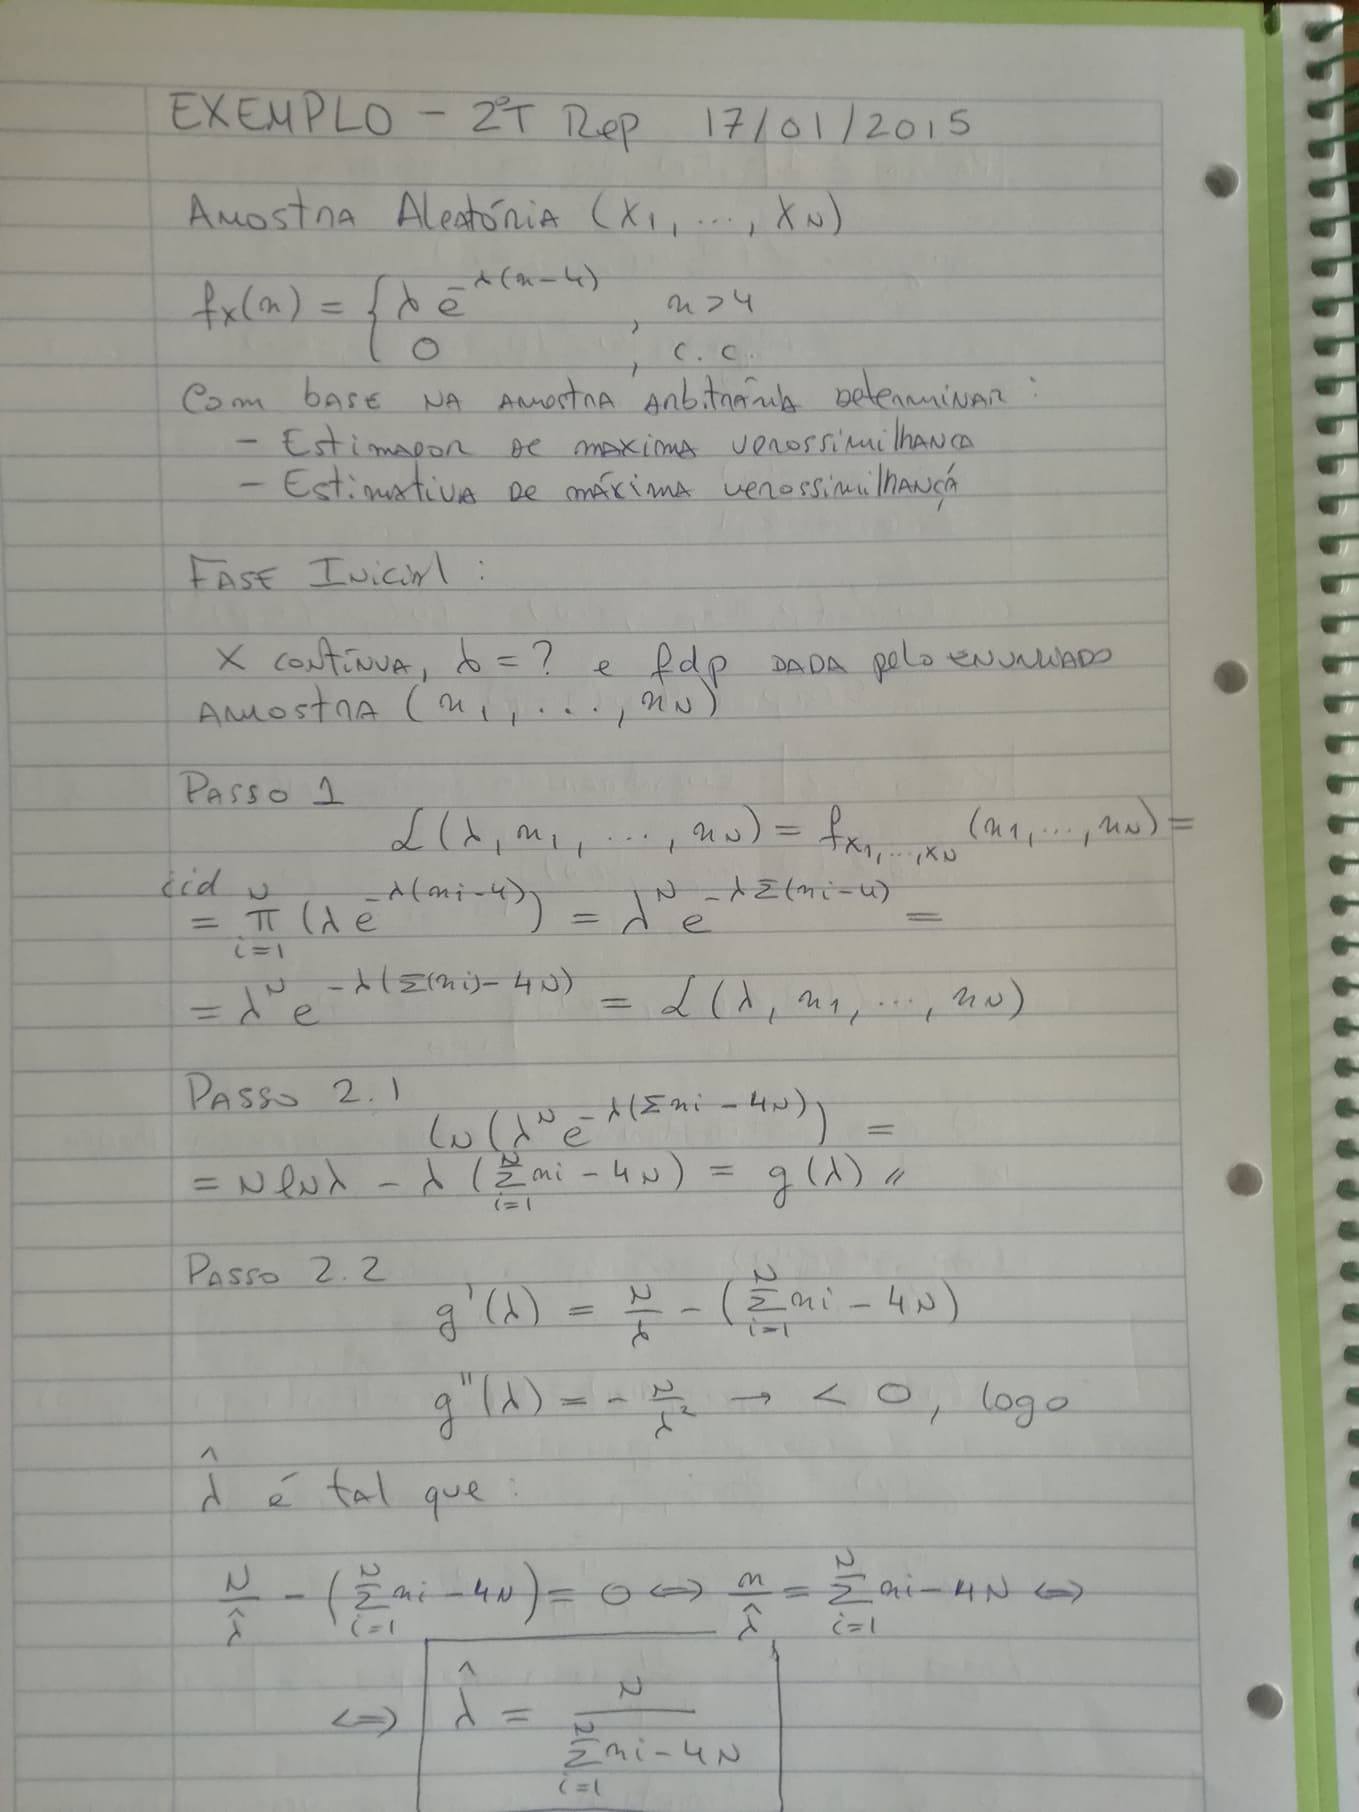 EXEMPLO - 2ºT Rep 17/01/2015
Amostra Aleatória (X₁, ..., X_N)
f_X(x) = { λ e^{-λ(x-4)} , x > 4
0 , c.c.
Com base na amostra arbitrária determinar :
- Estimador de maxima verossimilhança
- Estimativa de máxima verossimilhança
Fase Inicial :
X contínua, λ = ? e fdp dada pelo enunciado
Amostra (x₁, ..., x_N)
Passo 1
L(λ, x₁, ..., x_N) = f_{X₁,...,X_N} (x₁, ..., x_N) =
iid
= π_{i=1}^{N} (λ e^{-λ(xi-4)}) = λ^N e^{-λΣ(xi-4)} =
= λ^N e^{-λ(Σ(xi)-4N)} = L(λ, x₁, ..., x_N)
Passo 2.1
ln(λ^N e^{-λ(Σxi-4N)}) =
= N ln λ - λ (Σ_{i=1}^{N} xi - 4N) = g(λ) //
Passo 2.2
g'(λ) = N/λ - (Σ_{i=1}^{N} xi - 4N)
g''(λ) = - N/λ² → < 0, logo
λ̂ é tal que :
N/λ̂ - (Σ_{i=1}^{N} xi - 4N) = 0 ⇔ n/λ̂ = Σ_{i=1}^{N} xi - 4N ⇔
⇔ λ̂ = N / (Σ_{i=1}^{N} xi - 4N)